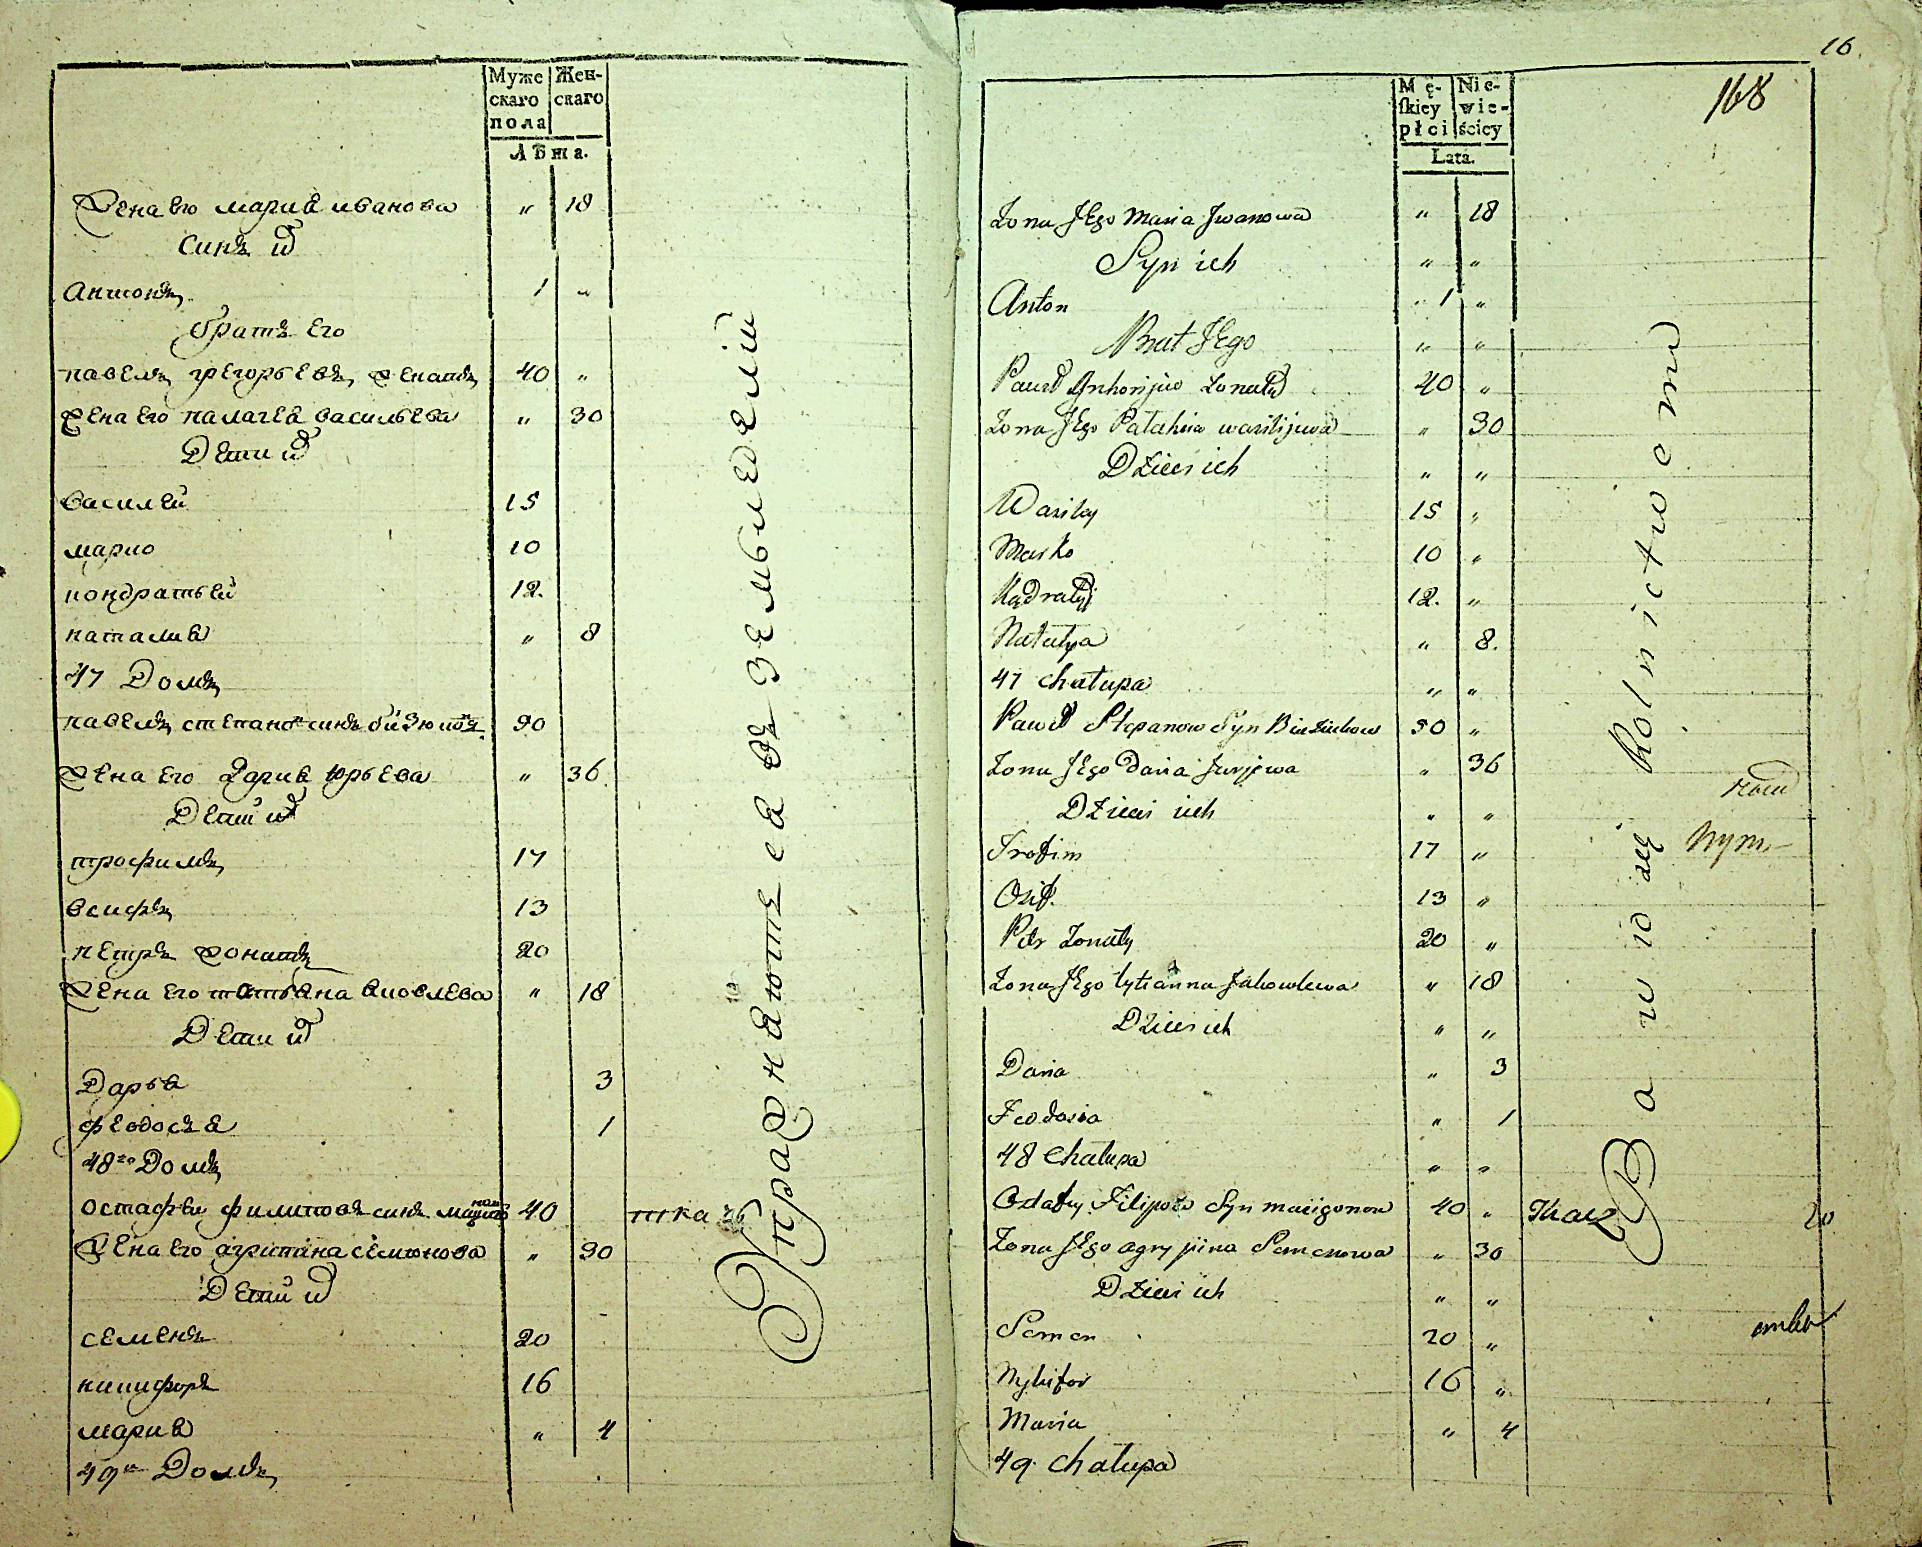 Муже Жен-
скаго скаго
пола
Лѣта.
Жена Его мария иванова " 18
Синъ их
Антонъ 1 "
братъ Его
павелъ грегорьевъ, женатъ 40 "
Жена Его палагея васильева " 30
Дети их
василей 15
марко 10
кондратьей 12.
наталия " 8
47 Домъ
павелъ степановъ синъ 50
Жена Его Дария юрьева " 36
Дети их
трофимъ 17
осифъ 13
петръ жонатъ 20
Жена Его татьяна яковлева " 18
Дети их
Дарья 3
феодосъя 1
48го Домъ
остафѣи филиповъ синъ 40 ткачъ
Жена Его агрипина семюнова " 30
Дети их
семенъ 20
никифоръ 16
мария " 4
49й Домъ
Упражняются въ земьледелии
16
168
Mę- Nie-
ſkiey wie-
płci ściey
Lata.
Zona JEgo Maria Jwanowa " 18
Syn ich " "
Anton 1 "
Brat JEgo " "
Paweł Hrehorijuw Zonaty 40 "
Zona JEgo Pałahia wasilijewa " 30
Dzieci ich " "
Wasiley 15 "
Marko 10 "
Kądratyj 12. "
Natalya " 8.
47 chałupa " "
Paweł Stepanow Syn 50 "
Zona JEgo Daria Jurjewa " 36
Dzieci ich " "
Trofim 17 "
Osif. 13 "
Petr Zonaty 20 "
Zona JEgo tytianna Jakowlewa " 18
Dzieci ich " "
Daria " 3
Feodosia " 1
48 Chałupa " "
Ostafey Filipow Syn macigonow 40 " Tkacz
Zona JEgo agrypina Semenowa " 30
Dzieci ich " "
Semen 20 "
Nykifor 16 "
Maria " 4
49 chałupa
Bawią się Rolnictwem